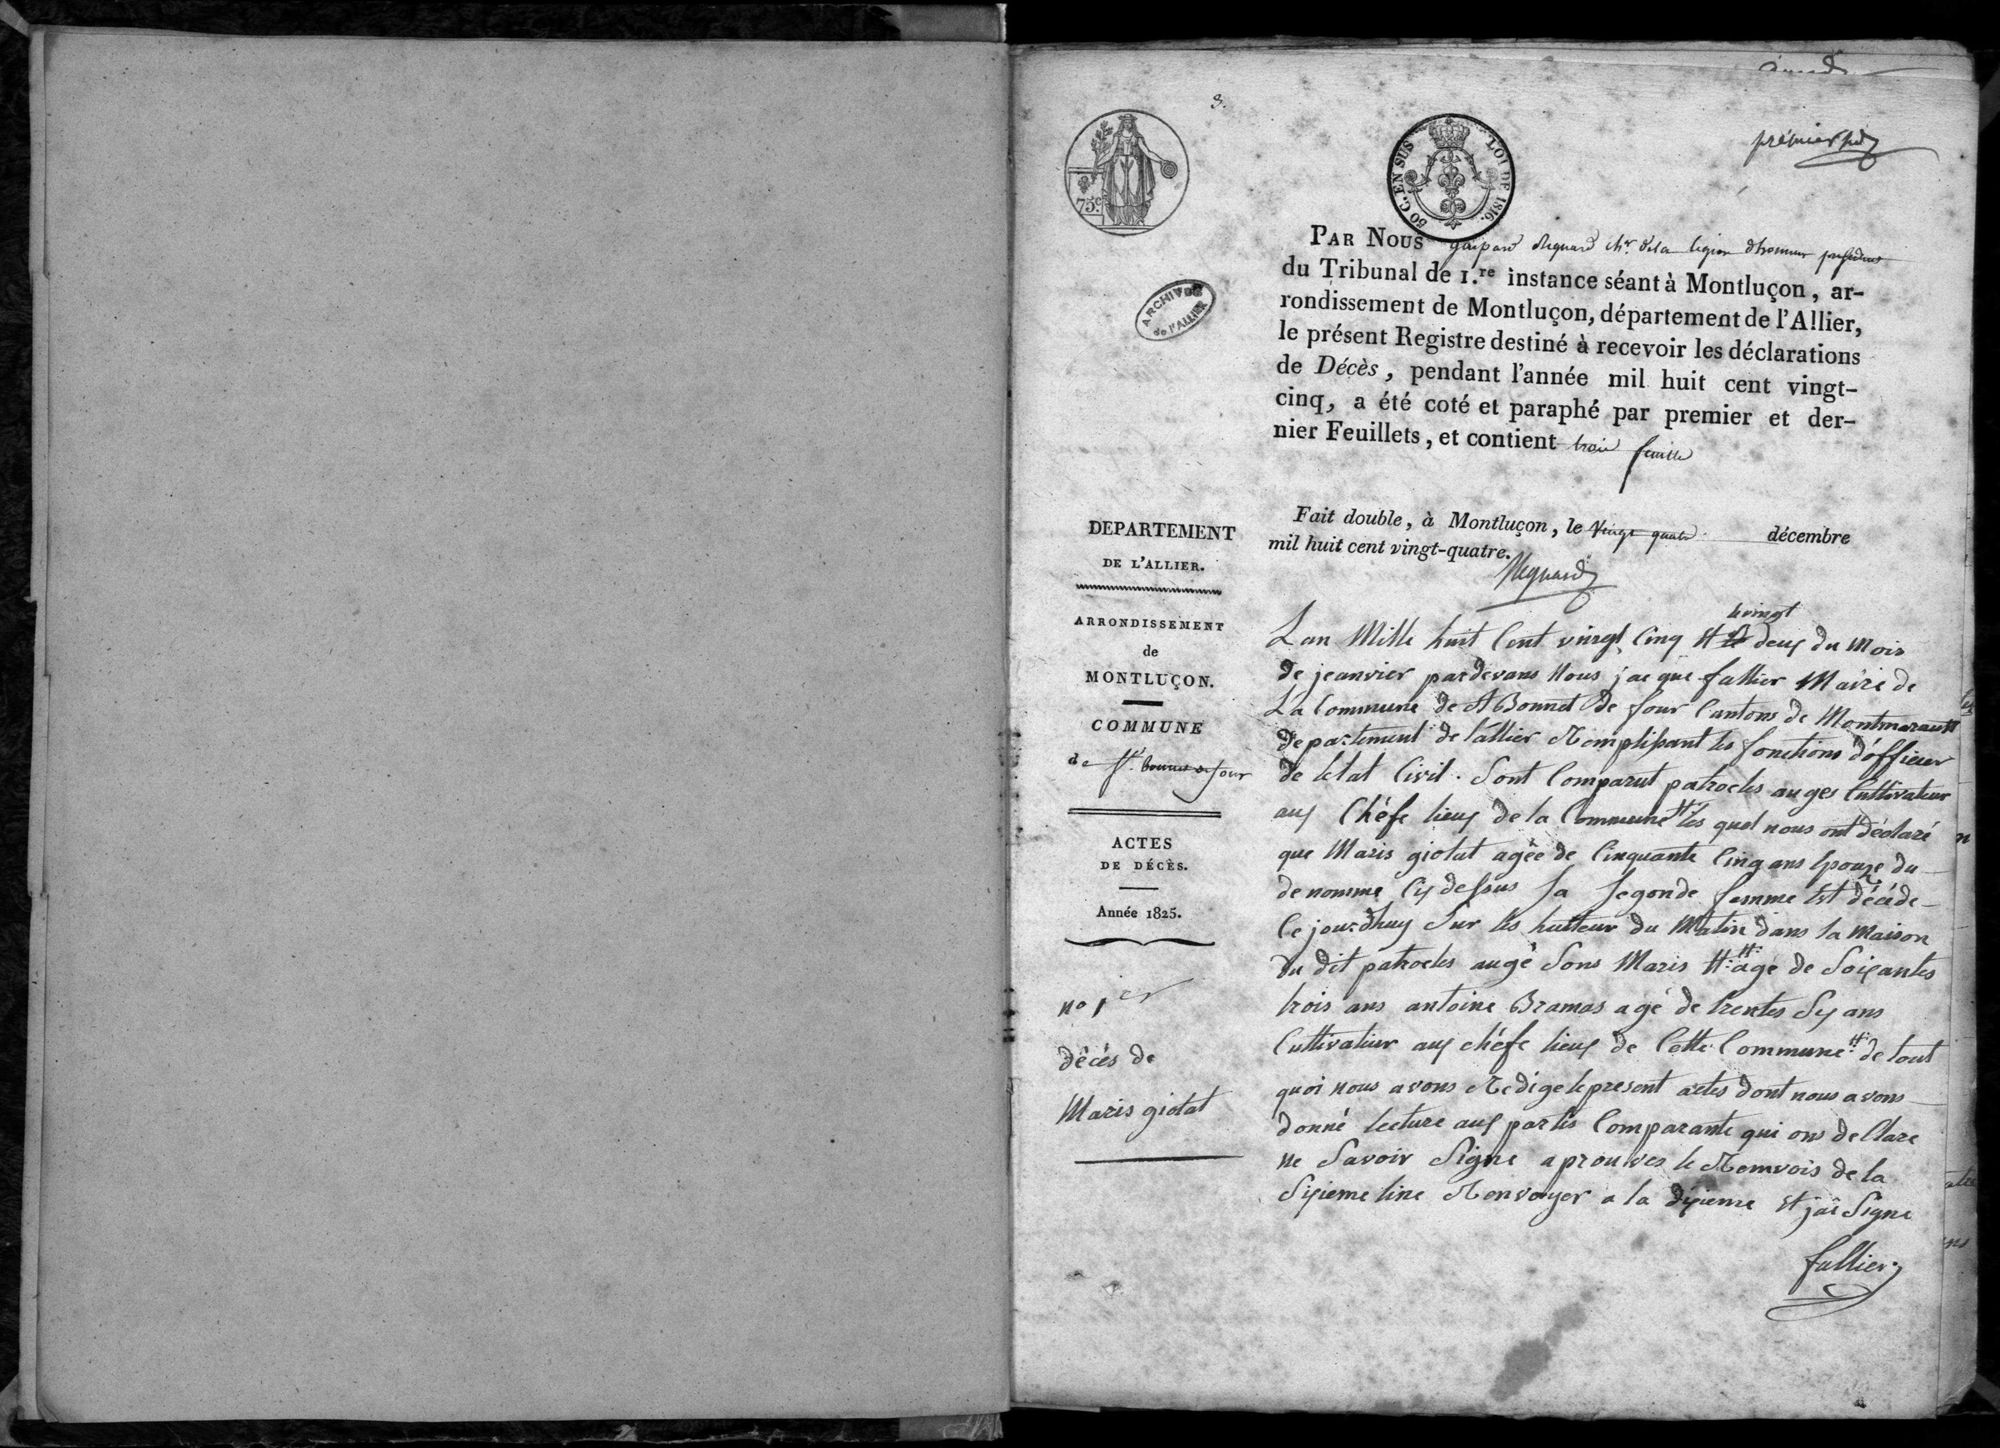 3.
premier
75 c.
50 C. EN SUS LOI DE 1816.
ARCHIVES de l'ALLIER
PAR NOUS gaspard Regnard ch.r de la legion dhonneur president
du Tribunal de 1.re instance séant à Montluçon, ar-
rondissement de Montluçon, département de l'Allier,
le présent Registre destiné à recevoir les déclarations
de Décès, pendant l'année mil huit cent vingt-
cinq, a été coté et paraphé par premier et der-
nier Feuillets, et contient trois feuille
Fait double, à Montluçon, le vingt quatre décembre
mil huit cent vingt-quatre.
Regnard
DEPARTEMENT
DE L'ALLIER.
ARRONDISSEMENT
de
MONTLUÇON.
COMMUNE
de St. Bonnet de four
ACTES
DE DÉCÈS.
Année 1825.
no 1er
décés de
Maris giotat
Lan Mille huit Cent vingt Cinq deux du Mois
de jeanvier pardevans Nous jacque fallier Maire de
La Commune de St Bonnet de four Cantons de Montmarault
departement de lallier Remplissant les fonctions d'officier
de letat Civil. Sont Comparut patrocles auges Cultivateur
aux Chéfe lieux de la Commune les quel nous ont déclaré
que Maris giotat agée de Cinquante Cinq ans Epouze du
denomme Cy dessus Sa Segonde femme Est décéde
Ce jourdhuy Sur les huiteur du Matin dans la Maison
du dit patrocles augé Sons Maris agé de Soixantes
trois ans antoine Bramas agé de trentes Six ans
Cultivatier aux chéfe lieux de Cette Commune de tout
quoi nous avons Redige le present actes dont nous avons
donné lecture aux partis Comparante qui ons declare
ne Savoir Signe aprouves le Romvois de la
Sixieme line Renvoyer a la dixieme Et jai Signe
fallier